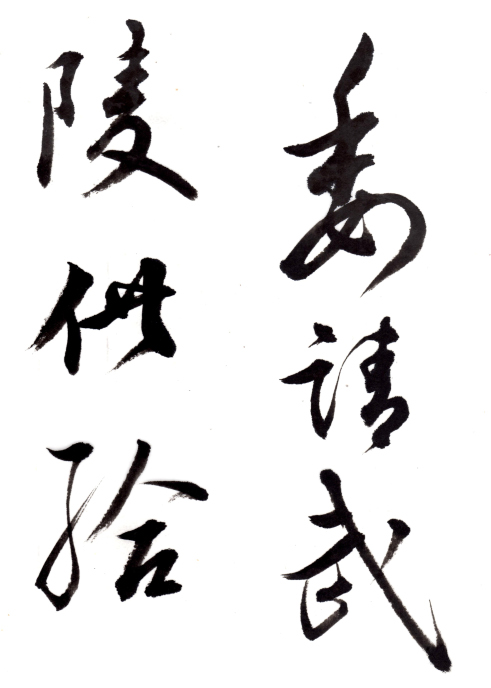 委請武
陵供給